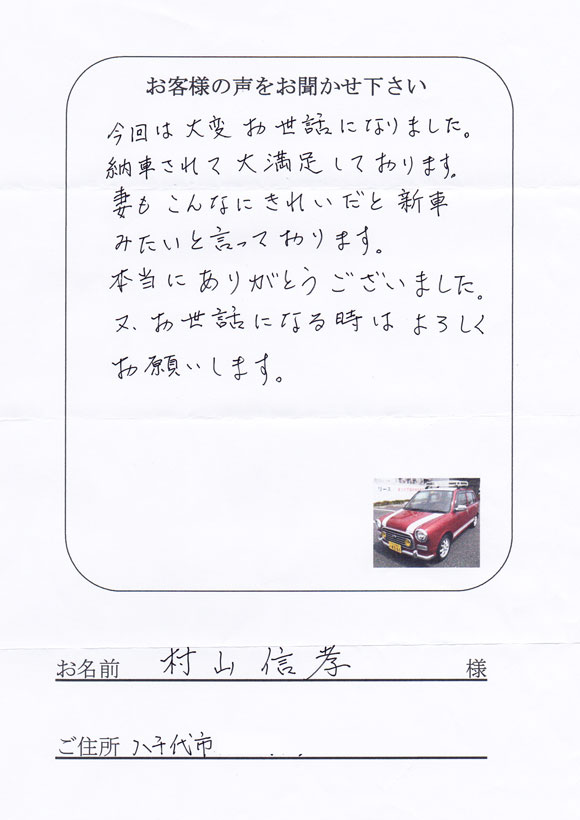 お客様の声をお聞かせ下さい
今回は大変お世話になりました。
納車されて大満足しております。
妻もこんなにきれいだと新車
みたいと言っております。
本当にありがとうございました。
又、お世話になる時はよろしく
お願いします。
お名前 村山信孝 様
ご住所 八千代市